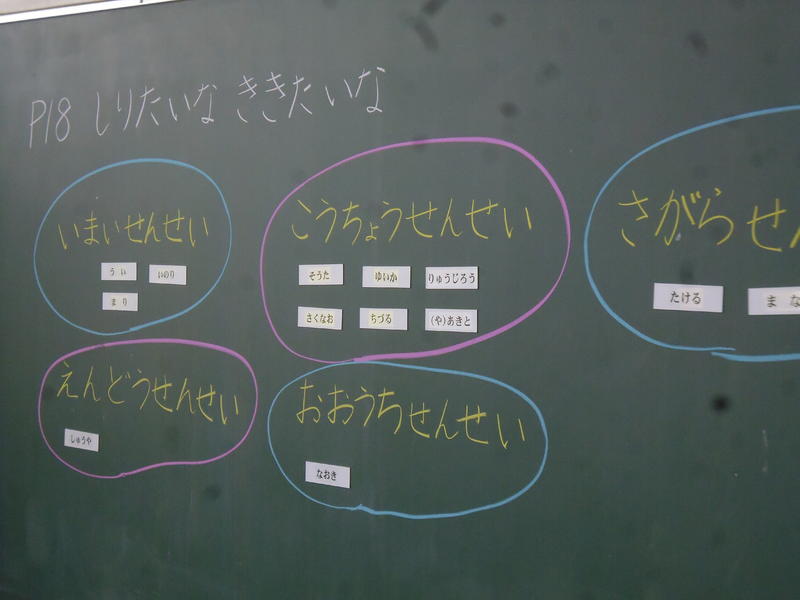 P18 しりたいな ききたいな
いまいせんせい
うい いのり
まり
こうちょうせんせい
そうた ゆいか りゅうじろう
さくなお ちづる (や)あきと
さがらせん
たける まな
えんどうせんせい
しゅうや
おおうちせんせい
なおき